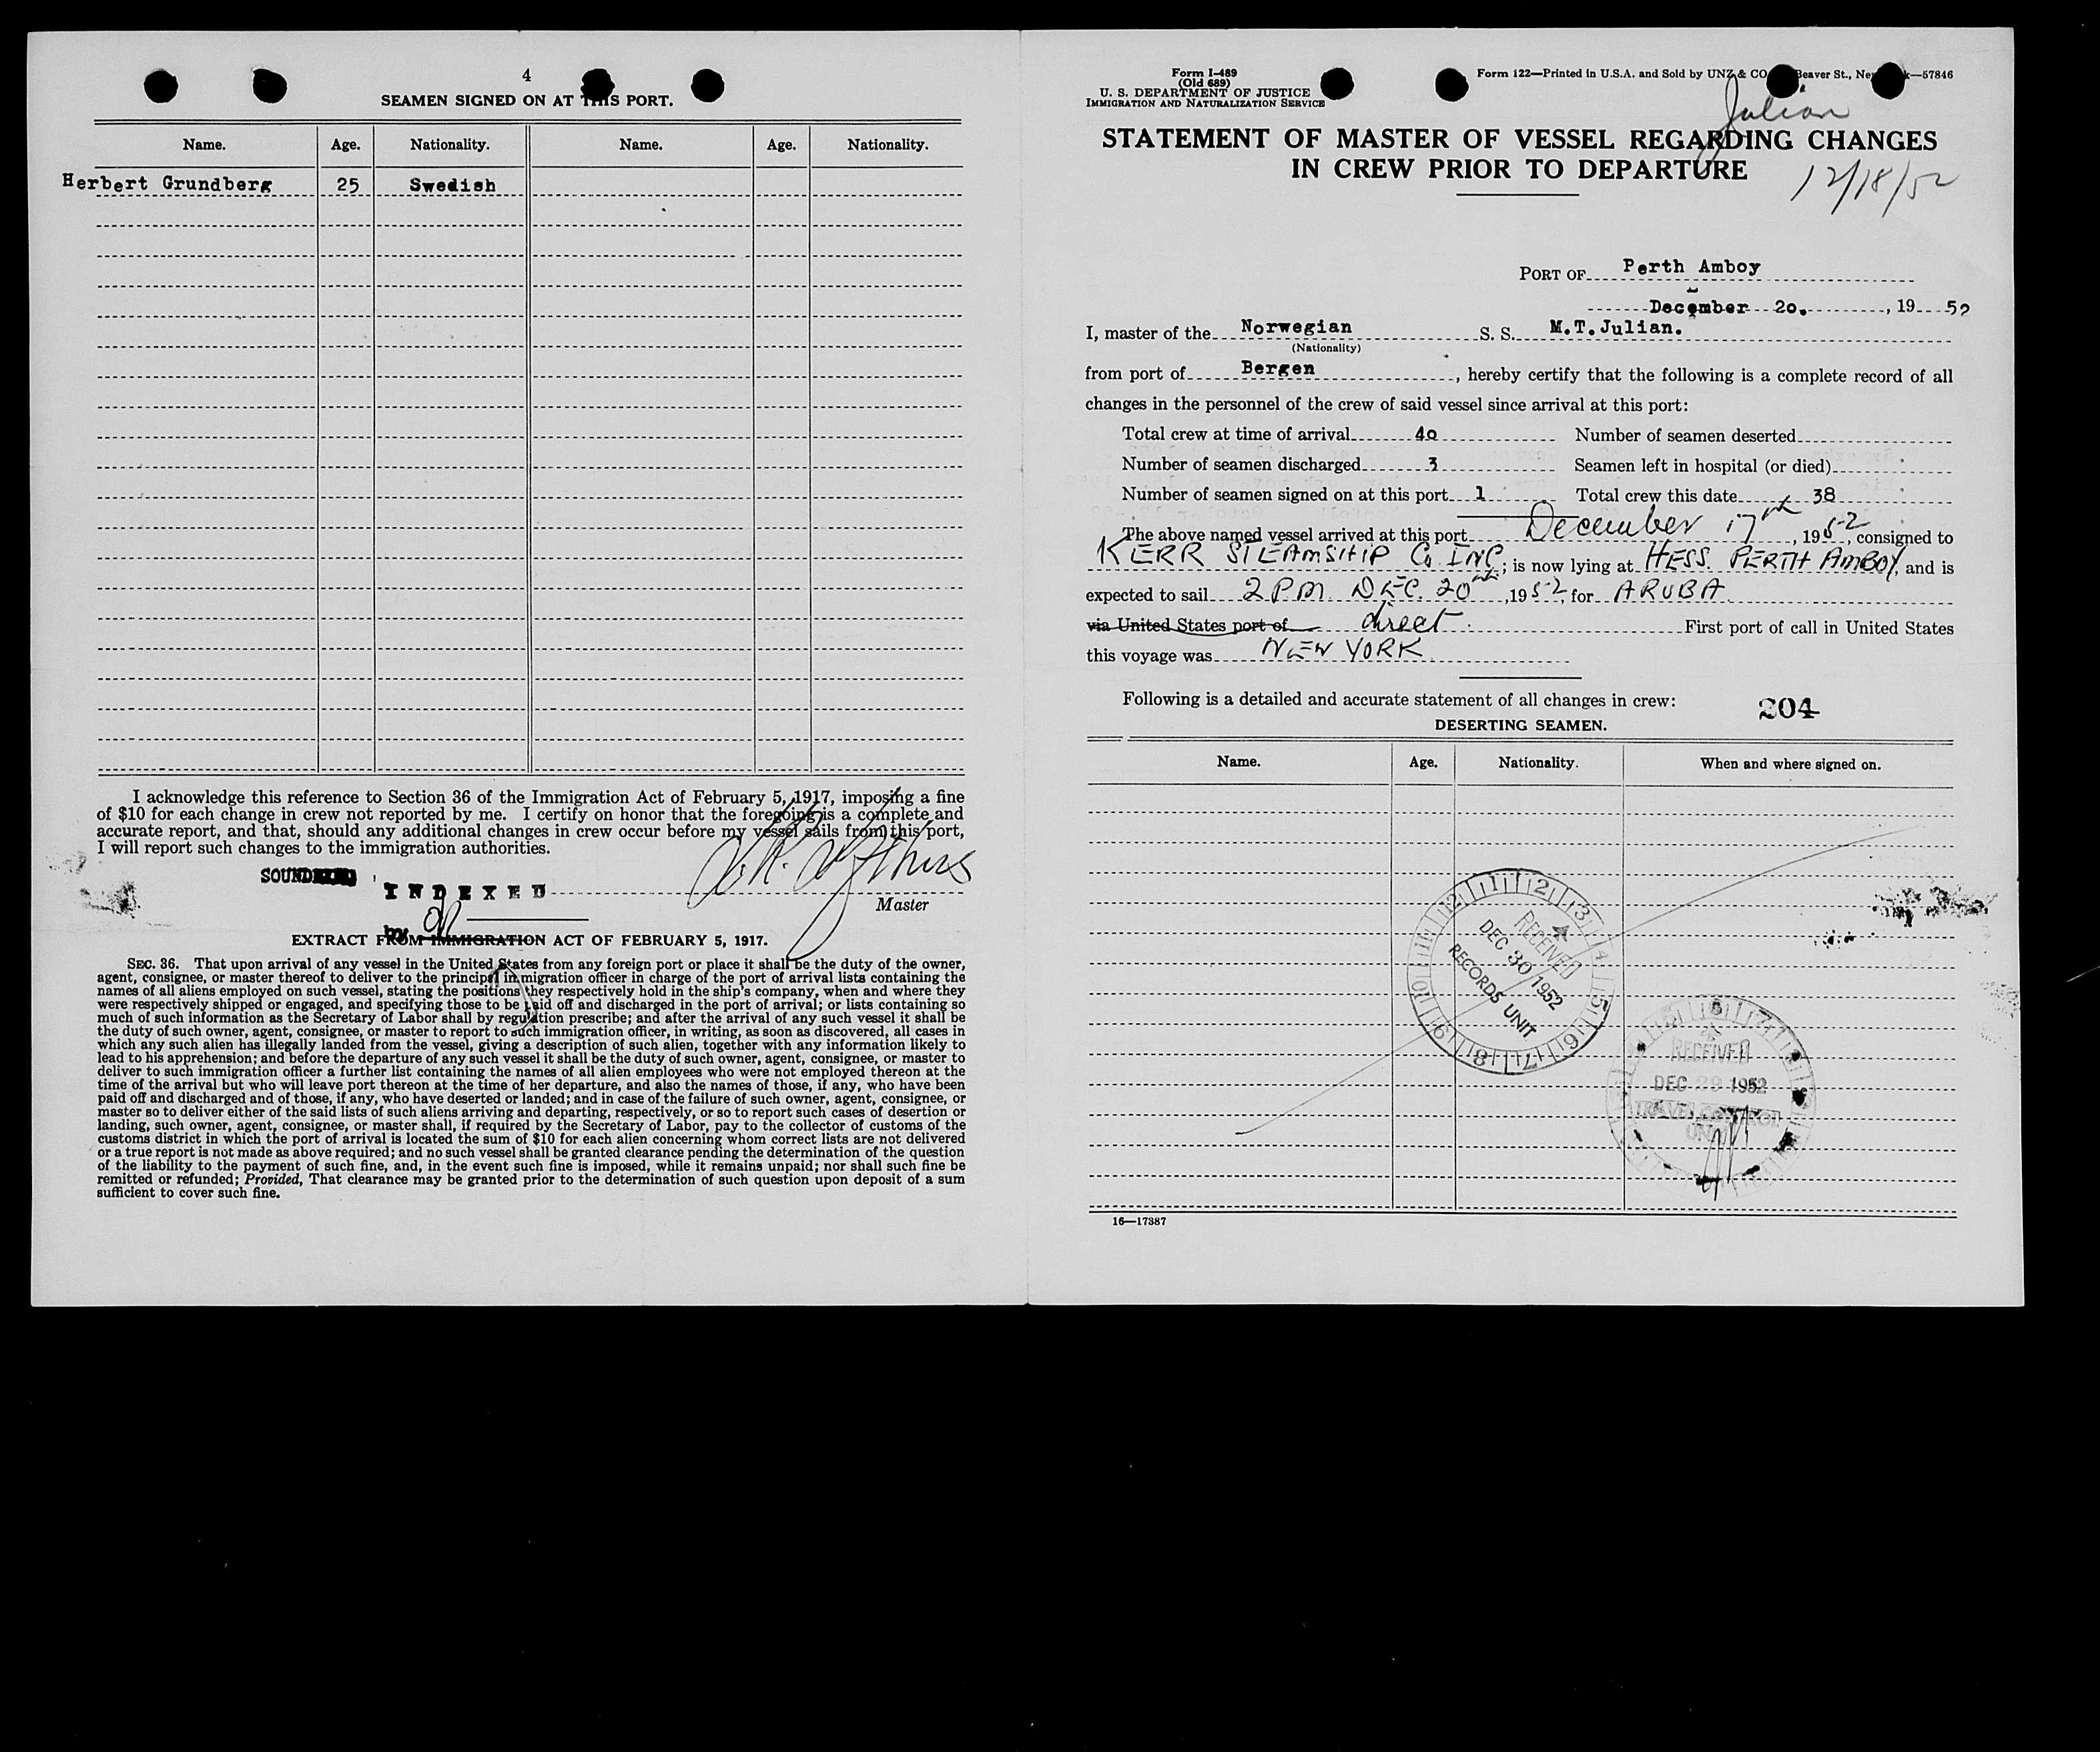 4
SEAMEN SIGNED ON AT THIS PORT.
Name. Age. Nationality. Name. Age. Nationality.
Herbert Grundberg 25 Swedish
I acknowledge this reference to Section 36 of the Immigration Act of February 5, 1917, imposing a fine
of $10 for each change in crew not reported by me. I certify on honor that the foregoing is a complete and
accurate report, and that, should any additional changes in crew occur before my vessel sails from this port,
I will report such changes to the immigration authorities.
SOUND
INDEXED
Master
by
EXTRACT FROM IMMIGRATION ACT OF FEBRUARY 5, 1917.
SEC. 36. That upon arrival of any vessel in the United States from any foreign port or place it shall be the duty of the owner,
agent, consignee, or master thereof to deliver to the principal immigration officer in charge of the port of arrival lists containing the
names of all aliens employed on such vessel, stating the positions they respectively hold in the ship's company, when and where they
were respectively shipped or engaged, and specifying those to be paid off and discharged in the port of arrival; or lists containing so
much of such information as the Secretary of Labor shall by regulation prescribe; and after the arrival of any such vessel it shall be
the duty of such owner, agent, consignee, or master to report to such immigration officer, in writing, as soon as discovered, all cases in
which any such alien has illegally landed from the vessel, giving a description of such alien, together with any information likely to
lead to his apprehension; and before the departure of any such vessel it shall be the duty of such owner, agent, consignee, or master to
deliver to such immigration officer a further list containing the names of all alien employees who were not employed thereon at the
time of the arrival but who will leave port thereon at the time of her departure, and also the names of those, if any, who have been
paid off and discharged and of those, if any, who have deserted or landed; and in case of the failure of such owner, agent, consignee, or
master so to deliver either of the said lists of such aliens arriving and departing, respectively, or so to report such cases of desertion or
landing, such owner, agent, consignee, or master shall, if required by the Secretary of Labor, pay to the collector of customs of the
customs district in which the port of arrival is located the sum of $10 for each alien concerning whom correct lists are not delivered
or a true report is not made as above required; and no such vessel shall be granted clearance pending the determination of the question
of the liability to the payment of such fine, and, in the event such fine is imposed, while it remains unpaid; nor shall such fine be
remitted or refunded; Provided, That clearance may be granted prior to the determination of such question upon deposit of a sum
sufficient to cover such fine.
Form I-489
(Old 689)
U. S. DEPARTMENT OF JUSTICE
IMMIGRATION AND NATURALIZATION SERVICE
Form 122—Printed in U.S.A. and Sold by UNZ & CO Beaver St., —57846
Julian
STATEMENT OF MASTER OF VESSEL REGARDING CHANGES
IN CREW PRIOR TO DEPARTURE
12/18/52
PORT OF Perth Amboy
December 20. , 19 52
I, master of the Norwegian S. S. M.T.Julian.
(Nationality)
from port of Bergen , hereby certify that the following is a complete record of all
changes in the personnel of the crew of said vessel since arrival at this port:
Total crew at time of arrival 40 Number of seamen deserted
Number of seamen discharged 3 Seamen left in hospital (or died)
Number of seamen signed on at this port 1 Total crew this date 38
The above named vessel arrived at this port December 17th , 1952, consigned to
KERR STEAMSHIP Co INC; is now lying at HESS. PERTH AMBOY, and is
expected to sail 2 PM. DEC. 20th ,1952, for ARUBA
via United States port of direct. First port of call in United States
this voyage was NEW YORK
Following is a detailed and accurate statement of all changes in crew:
204
DESERTING SEAMEN.
Name. Age. Nationality. When and where signed on.
RECEIVED
DEC 30 1952
RECORDS UNIT
RECEIVED
DEC 29 1952
TRAVEL CONTROL
UNIT
16—17387